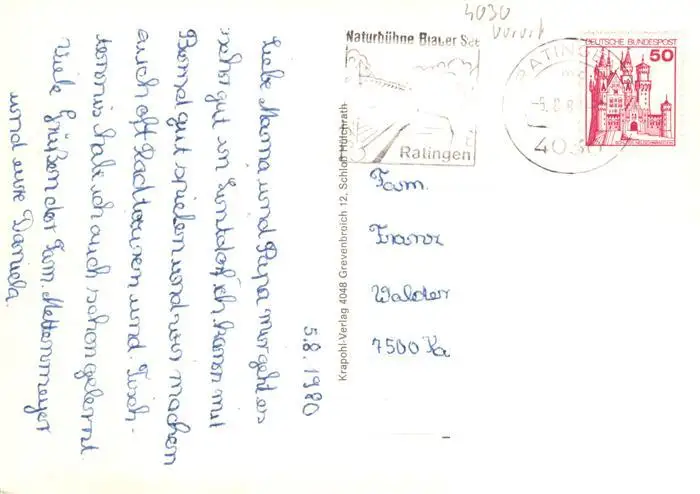 5.8.1980
Liebe Mama und Papa mir geht es
sehr gut in Lintdorf ich kann mit
Bernd gut spielen und wir machen
auch oft Radtouren und Tisch-
tennis habe ich auch schon gelernt
Viele Grüßen der Fam. Mettenmeyer
und eure Daniela.
Krapohl-Verlag 4048 Grevenbroich 12, Schloß Hülchrath
4030
Vorort
Naturbühne Blauer See
Ratingen
RATINGEN
4030
DEUTSCHE BUNDESPOST
50
Fam.
Franz
Walder
7500 Ka